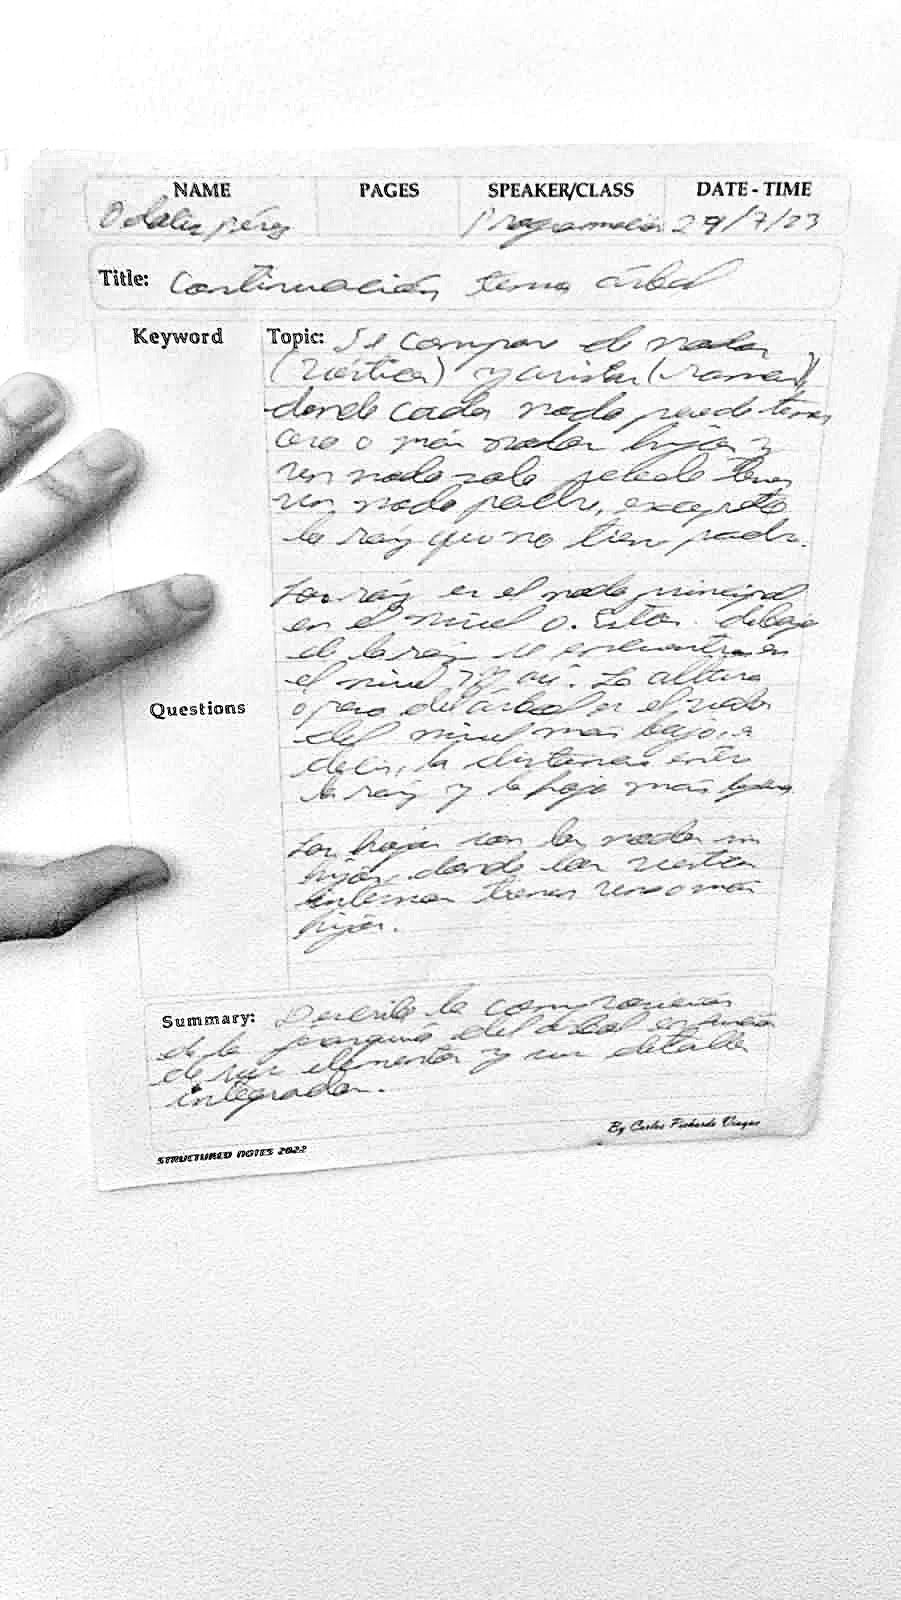 NAME PAGES SPEAKER/CLASS DATE - TIME
Odalis pérez Programación 29/7/23
Title: Continuación tema árbol
Keyword
Topic: Se compon de nodos
(vértices) y aristas (ramas)
donde cada nodo puede tener
cero o más nodos hijos y
un nodo solo puede tener
un nodo padre, excepto
la raíz que no tiene padre.
raíz es el nodo principal
en el nivel 0. debajo
de la raíz se encuentran en
el nivel así. La altura
o peso del árbol es el
del nivel más bajo, es
decir, la distancia entre
la raíz y la hoja más lejana.
Questions
Las hojas son los nodos sin
hijos, donde los vértices
internos tienen uno o más
hijos.
Summary: Describe la composición
de la jerarquía del árbol en
de sus elementos y sus detalles
integrados.
By Carlos Pichardo Viuque
STRUCTURED NOTES 2022